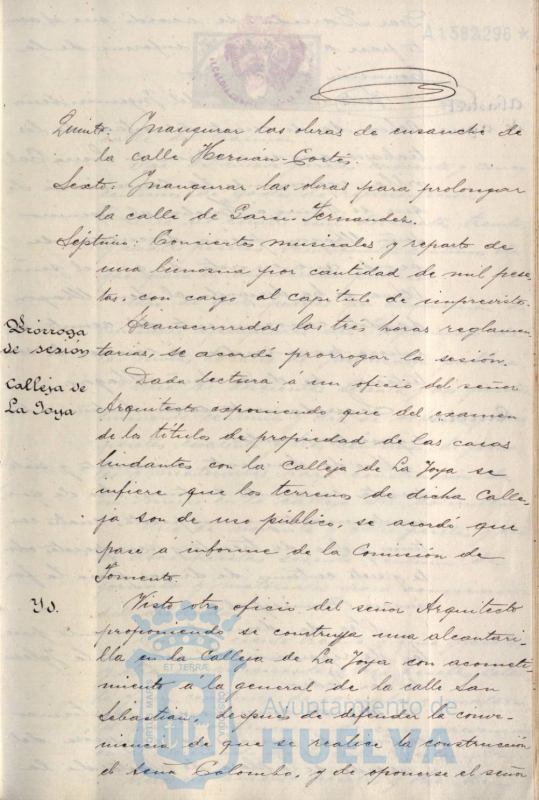 A1582296*
Quinto. Inaugurar las obras de ensanche de
la calle Hernán-Cortés.
Sexto. Inaugurar las obras para prolongar
la calle de Garci-Fernandez.
Séptimo: Conciertos musicales y reparto de
una limosna por cantidad de mil pese-
tas, con cargo al capítulo de imprevistos.
Prórroga
de sesión
Transcurridas las tres horas reglamen-
tarias, se acordó prorrogar la sesión.
Calleja de
La Joya
Dada lectura á un oficio del señor
Arquitecto exponiendo que del examen
de los títulos de propiedad de las casas
lindantes con la Calleja de La Joya se
infiere que los terrenos de dicha Calle-
ja son de uso público, se acordó que
pase á informe de la Comisión de
Fomento.
Yd.
Visto otro oficio del señor Arquitecto
proponiendo se construya una alcantari-
lla en la Calleja de La Joya con acometi-
miento á la general de la calle San
Sebastian, después de defender la conve-
niencia de que se realice la construcción
el señor Colombo, y de oponerse el señor
PORTUS MARIS
ET TERRÆ
CUSTODIA
Ayuntamiento de
HUELVA